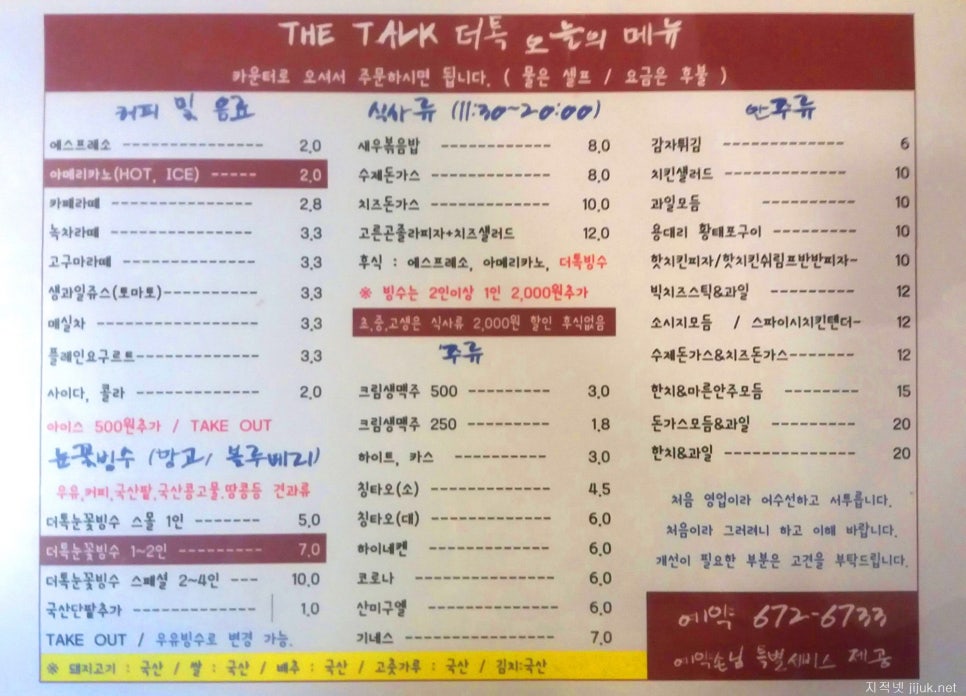 THE TALK 더톡 오늘의 메뉴
카운터로 오셔서 주문하시면 됩니다. ( 물은 셀프 / 요금은 후불 )
커피 및 음료
에스프레소 ---------------- 2.0
아메리카노(HOT, ICE) ----- 2.0
카페라떼 ---------------- 2.8
녹차라떼 ---------------- 3.3
고구마라떼 -------------- 3.3
생과일쥬스(토마토)--------- 3.3
매실차 ---------------- 3.3
플레인요구르트------------ 3.3
사이다, 콜라 ------------- 2.0
아이스 500원추가 / TAKE OUT
눈꽃빙수 (망고/ 블루베리)
우유,커피,국산팥,국산콩고물.땅콩등 견과류
더톡눈꽃빙수 스몰 1인 ------- 5.0
더톡눈꽃빙수 1~2인 --------- 7.0
더톡눈꽃빙수 스페셜 2~4인 --- 10.0
국산단팥추가 -------------- 1.0
TAKE OUT / 우유빙수로 변경 가능.
식사류 (11:30~20:00)
새우볶음밥 ------------ 8.0
수제돈가스 ------------- 8.0
치즈돈가스 ------------- 10.0
고른곤졸라피자+치즈샐러드 12.0
후식 : 에스프레소, 아메리카노, 더톡빙수
※ 빙수는 2인이상 1인 2,000원추가
초,중,고생은 식사류 2,000원 할인 후식없음
주류
크림생맥주 500 --------- 3.0
크림생맥주 250 --------- 1.8
하이트, 카스 ---------- 3.0
칭타오(소) ------------- 4.5
칭타오(대) ------------- 6.0
하이네켄 ------------- 6.0
코로나 -------------- 6.0
산미구엘 -------------- 6.0
기네스 -------------- 7.0
안주류
감자튀김 ------------- 6
치킨샐러드 ------------- 10
과일모듬 ---------- 10
용대리 황태포구이 --------- 10
핫치킨피자/핫치킨쉬림프반반피자- 10
빅치즈스틱&과일 --------- 12
소시지모듬 / 스파이시치킨텐더- 12
수제돈가스&치즈돈가스------- 12
한치&마른안주모듬 -------- 15
돈가스모듬&과일 --------- 20
한치&과일 -------------- 20
처음 영업이라 어수선하고 서투릅니다.
처음이라 그러려니 하고 이해 바랍니다.
개선이 필요한 부분은 고견을 부탁드립니다.
예약 672-6733
예약손님 특별서비스 제공
※ 돼지고기 : 국산 / 쌀 : 국산 / 배추 : 국산 / 고춧가루 : 국산 / 김치:국산
지적넷 jijuk.net